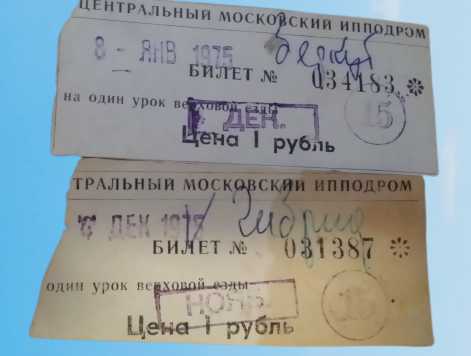 ЦЕНТРАЛЬНЫЙ МОСКОВСКИЙ ИППОДРОМ
8 - ЯНВ 1975 Беркут
БИЛЕТ № 034183 *
на один урок верховой езды
ДЕК. 15
Цена 1 рубль
ТРАЛЬНЫЙ МОСКОВСКИЙ ИППОДРОМ
ДЕК Гибрид
БИЛЕТ № 031387 *
один урок верховой езды
НОЯБ. 15
Цена 1 рубль